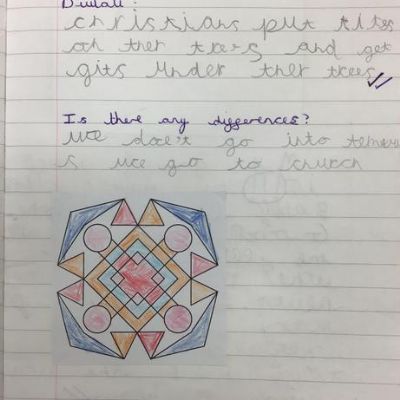 Diwali?
christians put lites
on ther trees and get
gits under ther trees
Is there any differences?
we doe't go into
s we go to church